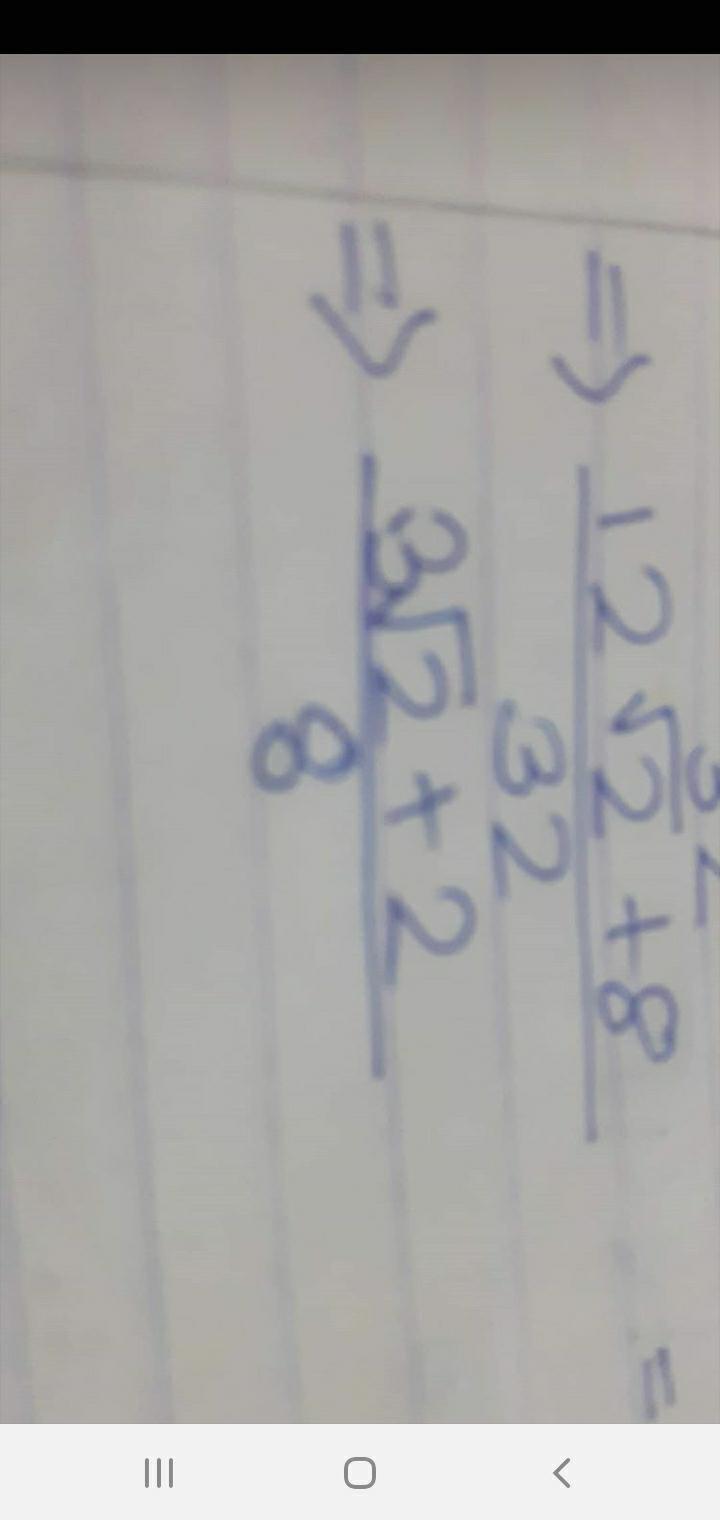 ⇒ 12√2 + 8 =
32
⇒ 3√2 + 2
8